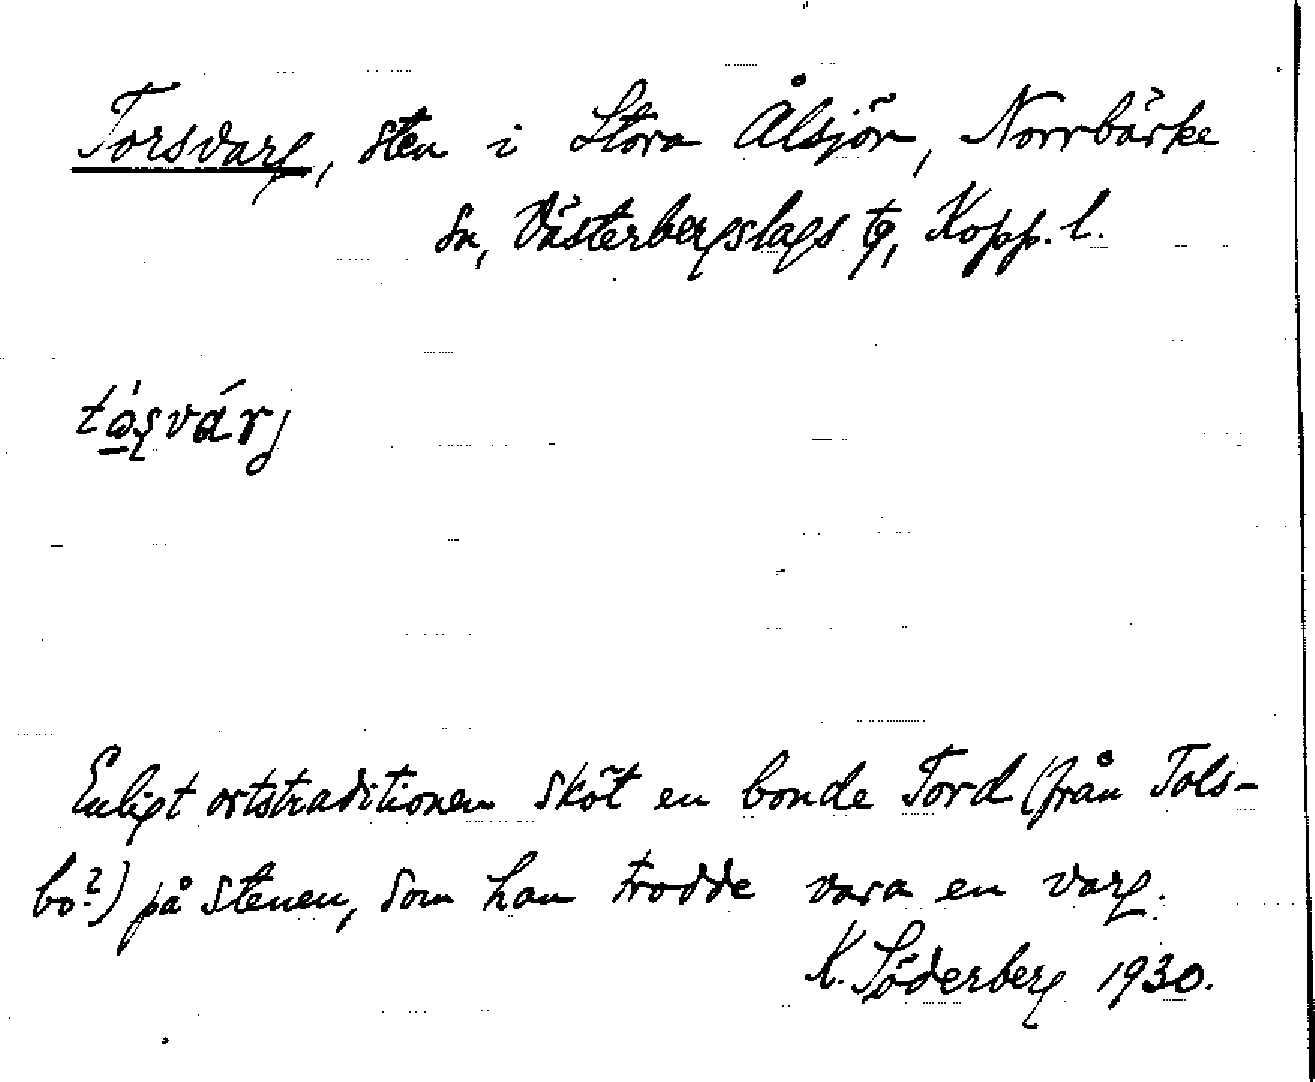 Torsvarg, sten i Stora Ålsjön, Norrbärke
sn, Västerbergslags tg, Kopp. l.
Enligt ortstraditionen sköt en bonde Tord (från Tols-
bo?) på stenen, som han trodde vara en varg.
K. Söderberg 1930.